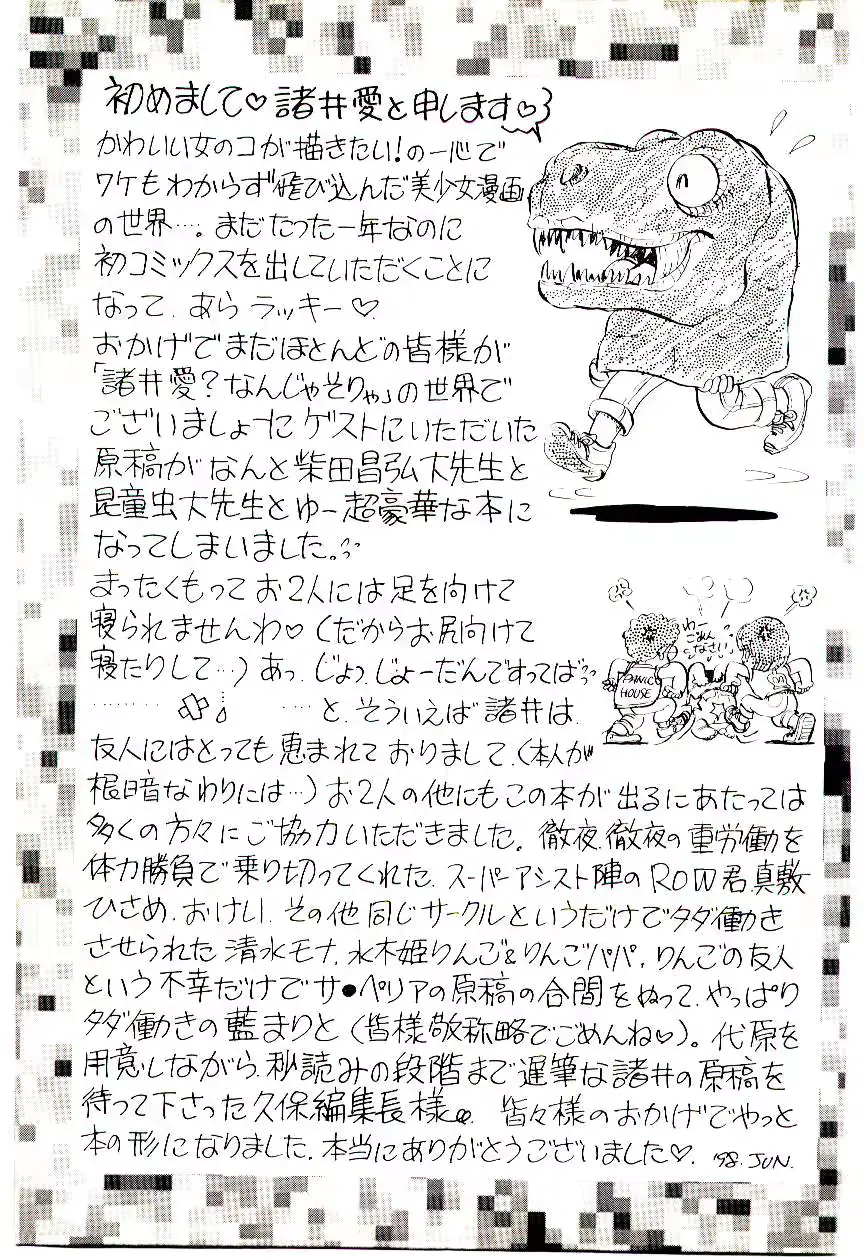 初めまして♡諸井愛と申します♡
かわいい女のコが描きたい!の一心で
ワケもわからず飛び込んだ美少女漫画
の世界…。まだたった一年なのに
初コミックスを出していただくことに
なって、あらラッキー♡
おかげでまだほとんどの皆様が
「諸井愛?なんじゃそりゃ」の世界で
ございましょーに ゲストにいただいた
原稿が なんと柴田昌弘大先生と
昆童虫大先生とゆー超豪華な本に
なってしまいました。
まったくもって お2人には足を向けて
寝られませんわ♡(だからお尻向けて
寝たりして…)あっ、じょっ、じょーだんですってば
わー
ごめん
なさい
PANIC
HOUSE
…と、そういえば 諸井は、
友人にはとっても恵まれておりまして、(本人が
根暗なわりには…)お2人の他にもこの本が出るにあたっては
多くの方々にご協力いただきました。徹夜、徹夜の重労働を
体力勝負で乗り切ってくれた、スーパーアシスト陣のROW君、真敷
ひさめ、おけい、その他同じサークルというだけでタダ働き
させられた清水モナ、水木姫りんご&りんごパパ、りんごの友人
という不幸だけでサ●ペリアの原稿の合間をぬって、やっぱり
タダ働きの藍まりと(皆様敬称略でごめんね♡)。代原を
用意しながら、秒読みの段階まで遅筆な諸井の原稿を
待って下さった久保編集長様。皆々様のおかげでやっと
本の形になりました。本当にありがとうございました♡.'98.JUN.